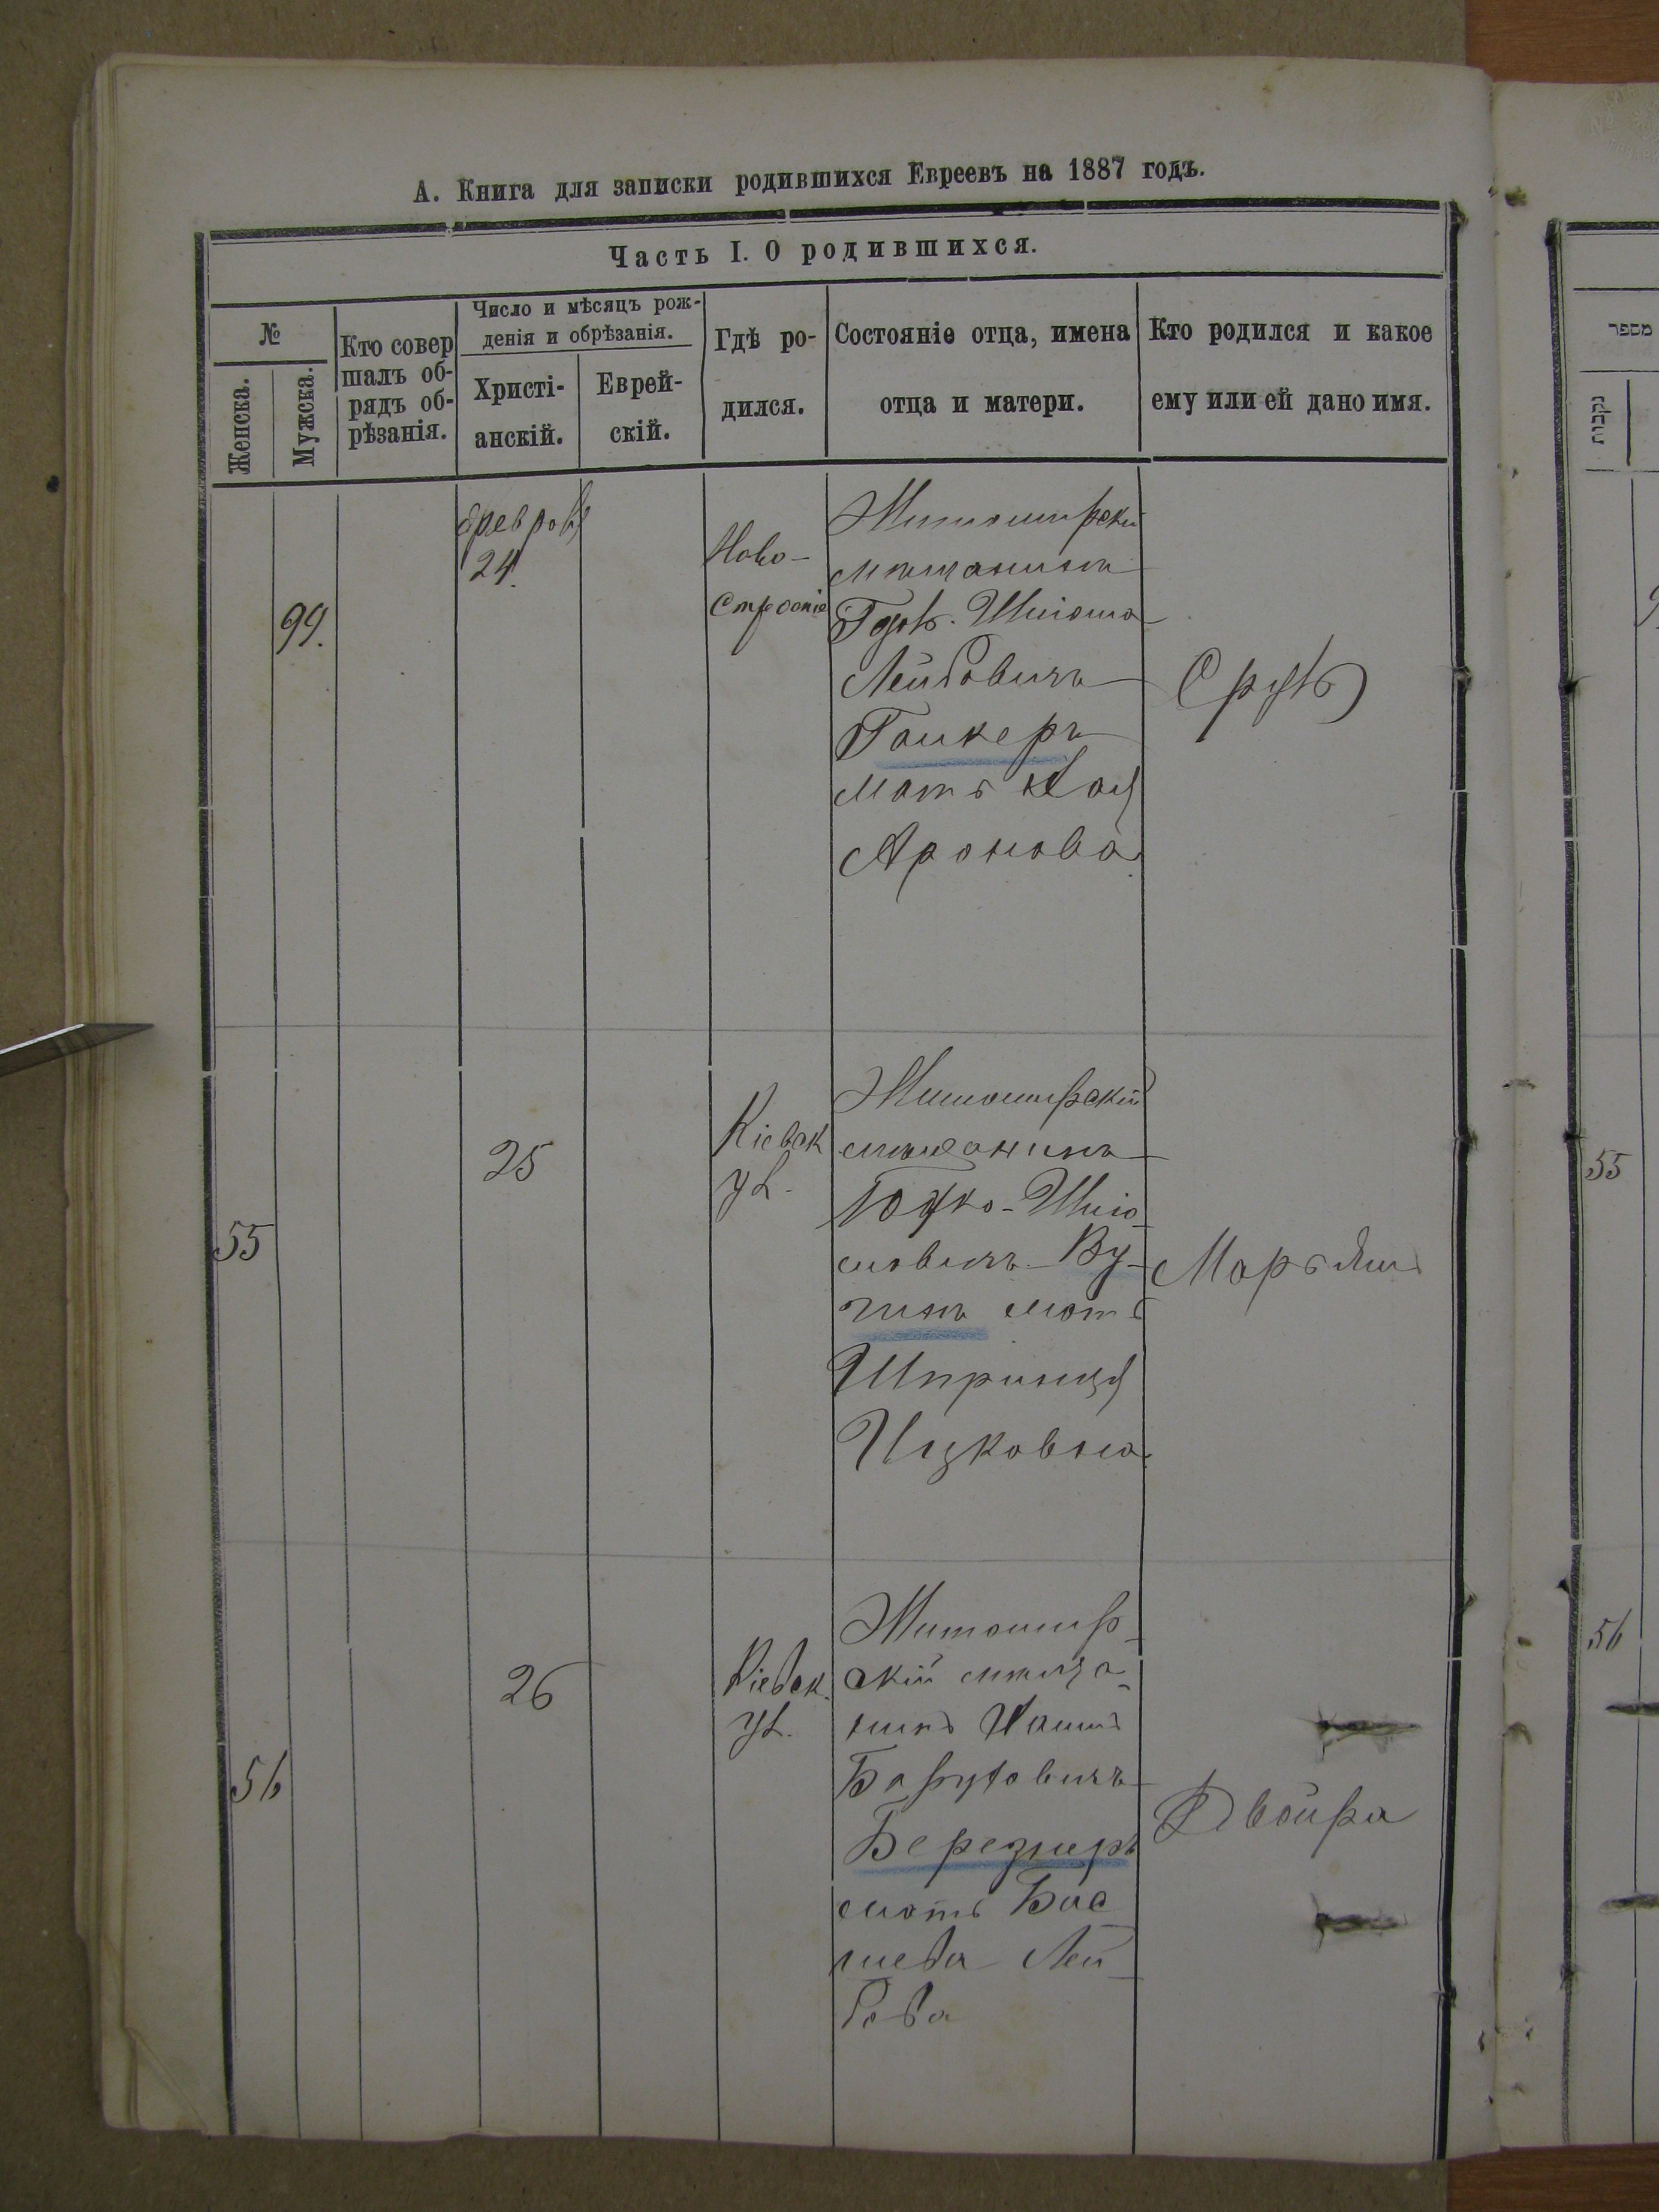 А. Книга для записки родившихся Евреевъ на 1887 годъ.
Часть I. О родившихся.
№
Женска.
Мужска.
Кто совер
шалъ об-
рядъ об-
рѣзанія.
Число и мѣсяцъ рож-
денія и обрѣзанія.
Христі-
анскій.
Еврей-
скій.
Гдѣ ро-
дился.
Состояніе отца, имена
отца и матери.
Кто родился и какое
ему или ей дано имя.
99.
24.
Ново-
Строеніе
Житомирскій
мѣщанинъ
Шлiома
Лейбовичъ
мать Хая
Аронова
Сруль
55
25
Кіевск
ул.
Житомирскій
мѣщанинъ
мать
Шпринца
Ицковна
Марьямъ
56
26
Кіевск.
ул.
Житомир-
скій мѣща-
нинъ Хаимъ
Баруховичъ
Березнеръ
мать Бас
шева Лей
бова
Двойра
מספר
נקבות
55
56